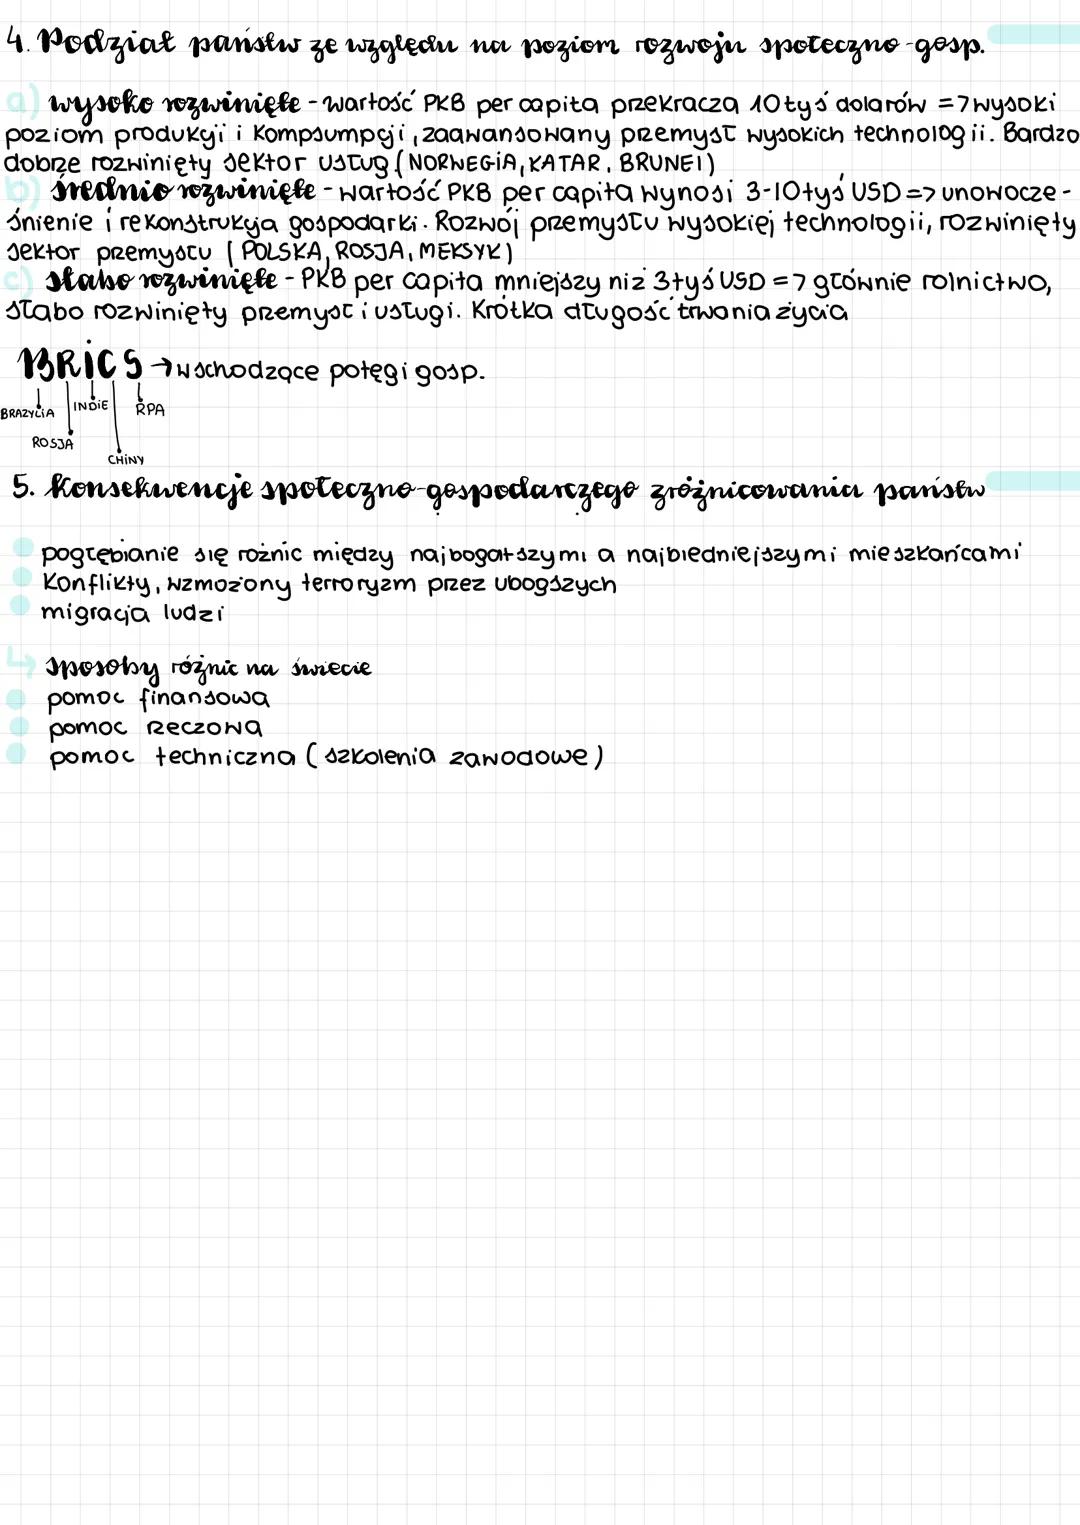 4. Podział państw ze względu na poziom rozwoju społeczno-gosp.
a) wysoko rozwinięte - wartość PKB per capita przekracza 10tyś dolarów => wysoki
poziom produkcji i kompsumpcji, zaawansowany przemysł wysokich technologii. Bardzo
dobrze rozwinięty sektor usług (NORWEGIA, KATAR, BRUNEI)
b) średnio rozwinięte - wartość PKB per capita wynosi 3-10tyś USD => unowocze-
śnienie i rekonstrukcja gospodarki. Rozwój przemysłu wysokiej technologii, rozwinięty
sektor przemysłu (POLSKA, ROSJA, MEKSYK)
c) słabo rozwinięte - PKB per capita mniejszy niż 3tyś USD => głównie rolnictwo,
słabo rozwinięty przemysł i usługi. Krótka długość trwania życia
BRICS → wschodzące potęgi gosp.
BRAZYLIA INDIE RPA
ROSJA
CHINY
5. Konsekwencje społeczno-gospodarczego zróżnicowania państw
pogłębianie się różnic między najbogatszymi a najbiedniejszymi mieszkańcami
Konflikty, wzmożony terroryzm przez ubogszych
migracja ludzi
↳ sposoby różnic na świecie
pomoc finansowa
pomoc rzeczowa
pomoc techniczna (szkolenia zawodowe)